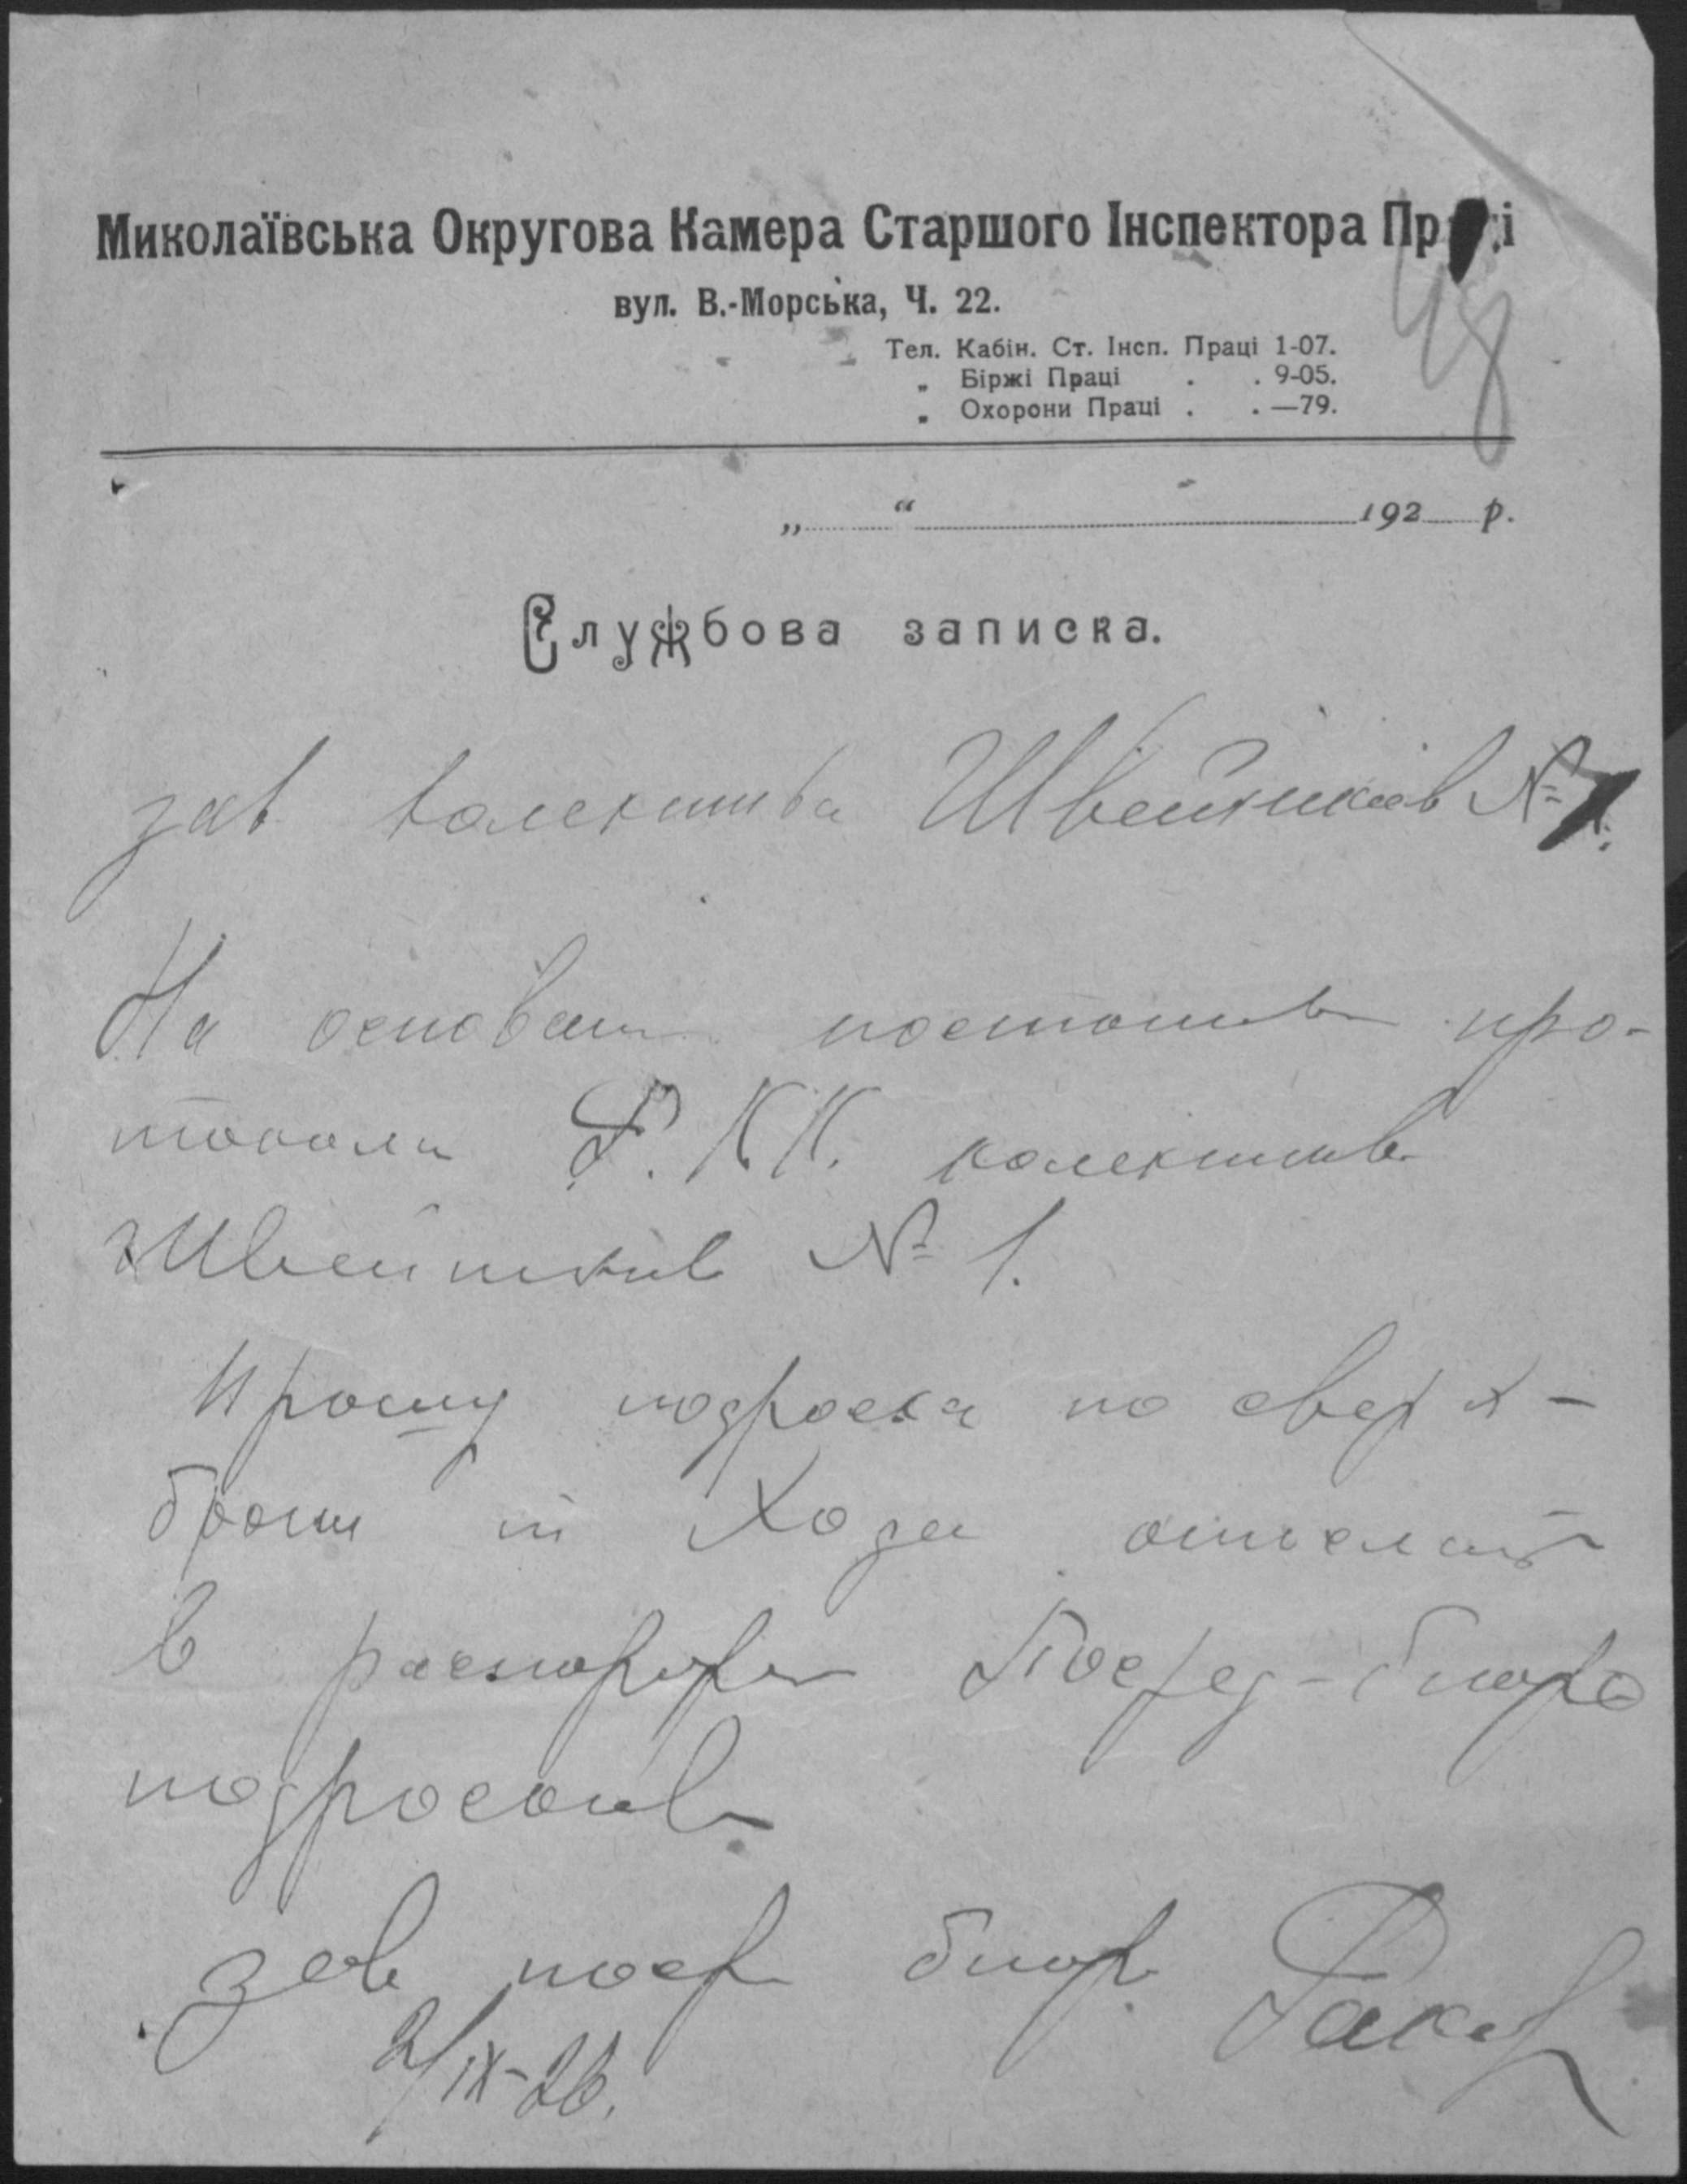 Миколаївська Округова Камера Старшого Інспектора Праці
48
вул. В.-Морська, Ч. 22.
Тел. Кабін. Ст. Інсп. Праці 1-07.
„ Біржі Праці . . 9-05.
„ Охорони Праці . . —79.
„ “ 192 р.
Службова записка.
зав колектива Швейников №
На основан постонов про-
токола Р.К.К. колектив
Швейников № 1.
Прошу подроска по сверх-
брони т Хода отослат
в распоряж Посред-бюро
подростков
Зав поср бюро
2/IX-26.